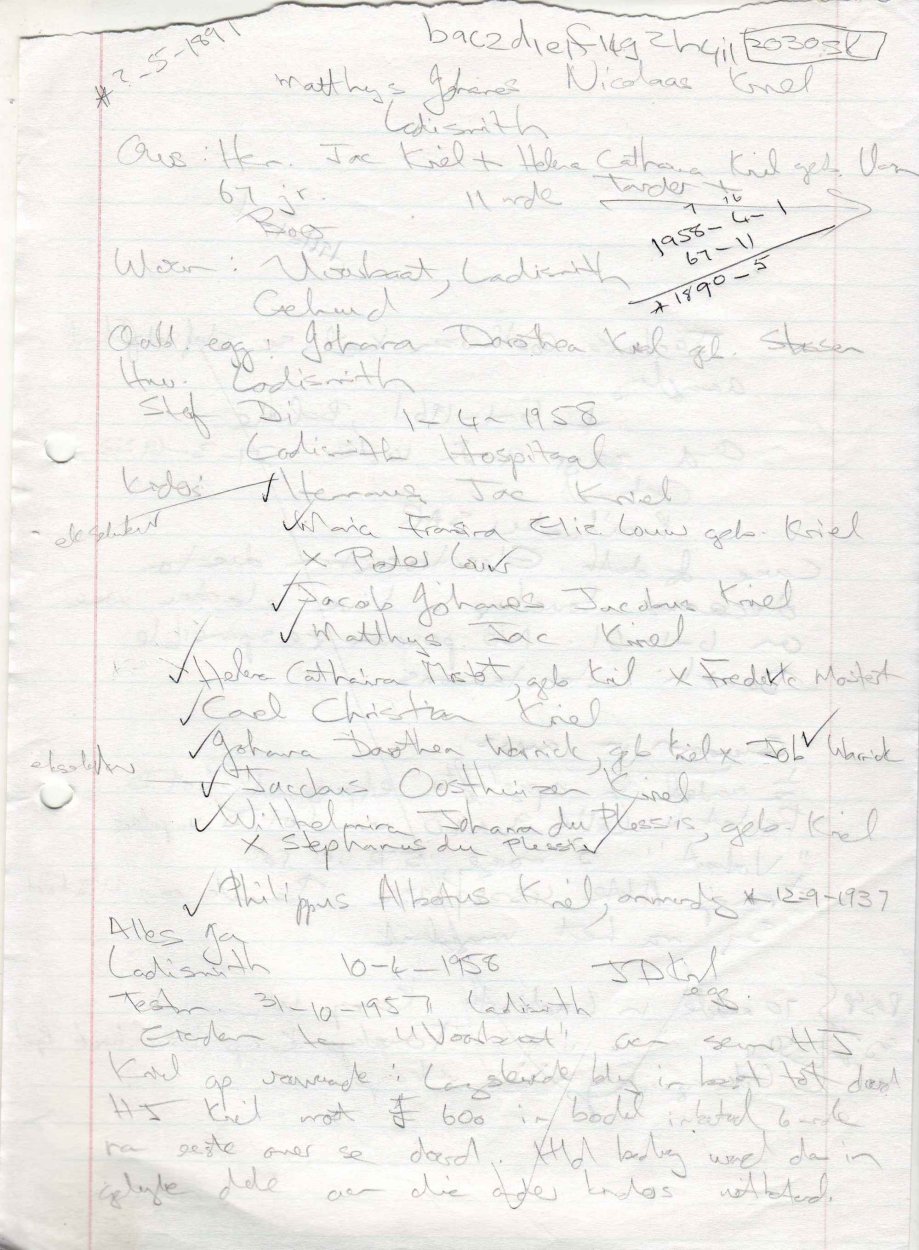 * ?-5-1891
bac2d1e1f14g2h4i1 2030SK
Matthys Johanes Nicolaas Kriel
Ladismith
Ous: Her. Jac Kriel + Helena Catharina Kriel geb. Van
Tarder +
67 jr. 11 mde
Boer
1958-4-1
67-11
* 1890-5
Woon: Voorbaat, Ladismith
Gehuud
Oorld. egg: Johanna Dorothea Kriel geb. Stassen
Huw. Ladismith
Sterf Di 1-4-1958
Ladismith Hospitaal
Kinders: ✓ Hermanus Jac Kriel
eksekuteur
✓ Maria Fransina Eliz Louw geb. Kriel
x Pieter Louw
✓ Jacob Johanes Jacobus Kriel
✓ Matthys Jac Kriel
✓ x Helena Catharina Mostert, geb Kriel x Frederik Mostert
✓ Carel Christian Kriel
✓ Johana Dorothea Warrick, geb Kriel x Job ✓ Warrick
eksekuteur
✓ Jacobus Oosthuizen Kriel
✓ Wilhelmina Johana du Plessis, geb. Kriel
x Stephanus du Plessis ✓
✓ Philippus Albertus Kriel, onmondig * 12-9-1937
Alles Ja
Ladismith 10-4-1958 JDKriel
egg.
Testm. 31-10-1957 Ladismith
"Voorbaat" aan seun HJ
Kriel op voorwaarde: Langslewende bly in besit tot dood
HJ Kriel moet £ 600 in boedel inbetaal 6 mde
na eerste ouer se dood. Hld bedrag word dan in
gelyke dele aan die ander kinders uitbetaal.